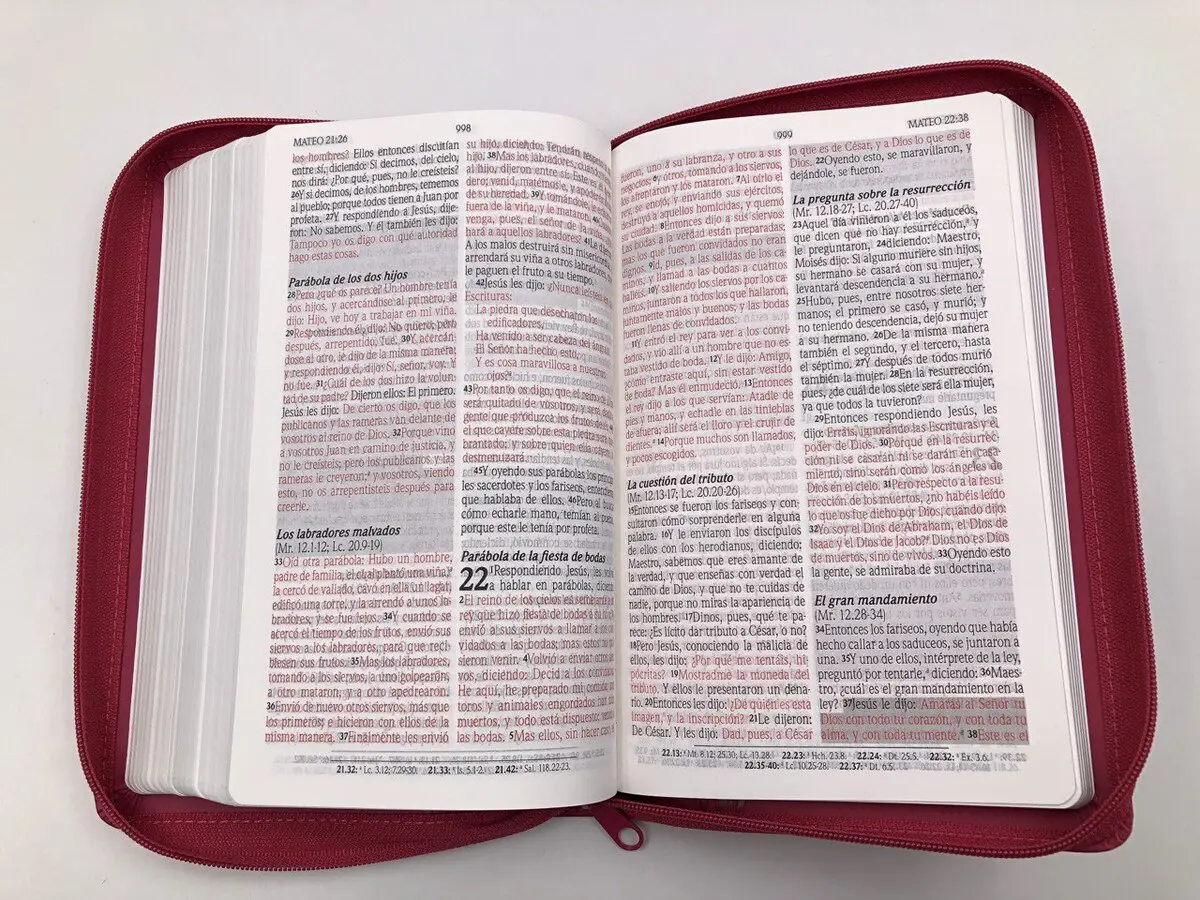 MATEO 21:26
998
los hombres? Ellos entonces discutían
entre sí, diciendo: Si decimos, del cielo,
nos dirá: ¿Por qué, pues, no le creísteis?
26Y si decimos, de los hombres, tememos
al pueblo; porque todos tienen a Juan por
profeta. 27Y respondiendo a Jesús, dije-
ron: No sabemos. Y él también les dijo:
Tampoco yo os digo con qué autoridad
hago estas cosas.
Parábola de los dos hijos
28Pero ¿qué os parece? Un hombre tenía
dos hijos, y acercándose al primero, le
dijo: Hijo, ve hoy a trabajar en mi viña.
29Respondiendo él, dijo: No quiero; pero
después, arrepentido, fue. 30Y acercán-
dose al otro, le dijo de la misma manera;
y respondiendo él, dijo: Sí, señor, voy. Y
no fue. 31¿Cuál de los dos hizo la volun-
tad de su padre? Dijeron ellos: El primero.
Jesús les dijo: De cierto os digo, que los
publicanos y las rameras van delante de
vosotros al reino de Dios. 32Porque vino
a vosotros Juan en camino de justicia, y
no le creísteis; pero los publicanos y las
rameras le creyeron;a y vosotros, viendo
esto, no os arrepentisteis después para
creerle.
Los labradores malvados
(Mr. 12.1-12; Lc. 20.9-19)
33Oíd otra parábola: Hubo un hombre,
padre de familia, el cual plantó una viña,a
la cercó de vallado, cavó en ella un lagar,
edificó una torre, y la arrendó a unos la-
bradores, y se fue lejos. 34Y cuando se
acercó el tiempo de los frutos, envió sus
siervos a los labradores, para que reci-
biesen sus frutos. 35Mas los labradores,
tomando a los siervos, a uno golpearon,
a otro mataron, y a otro apedrearon.
36Envió de nuevo otros siervos, más que
los primeros; e hicieron con ellos de la
misma manera. 37Finalmente les envió
su hijo, diciendo: Tendrán respeto
hijo. 38Mas los labradores, cuando
al hijo, dijeron entre sí: Este es el
dero; venid, matémosle, y apode
de su heredad. 39Y tomándole, le
fuera de la viña, y le mataron. 40
venga, pues, el señor de la viña
hará a aquellos labradores? 41Le
A los malos destruirá sin misericor
arrendará su viña a otros labradores
le paguen el fruto a su tiempo.
42Jesús les dijo: ¿Nunca leísteis en
Escrituras:
La piedra que desecharon los
edificadores,
Ha venido a ser cabeza del ángulo.
El Señor ha hecho esto,
Y es cosa maravillosa a nuestros
ojos?a
43Por tanto os digo, que el reino de
será quitado de vosotros, y será dado
gente que produzca los frutos de él.
el que cayere sobre esta piedra será
brantado; y sobre quien ella cayere,
desmenuzará.
45Y oyendo sus parábolas los princi
les sacerdotes y los fariseos, entendie
que hablaba de ellos. 46Pero al bus
cómo echarle mano, temían al pue
porque este le tenía por profeta.
Parábola de la fiesta de bodas
22 1Respondiendo Jesús, les vol
a hablar en parábolas, dicien
2El reino de los cielos es semejante
rey que hizo fiesta de bodas a su hi
envió a sus siervos a llamar a los co
vidados a las bodas; mas estos no
sieron venir. 4Volvió a enviar otros
vos, diciendo: Decid a los convidad
He aquí, he preparado mi comida;
toros y animales engordados han
muertos, y todo está dispuesto; ven
las bodas. 5Mas ellos, sin hacer caso,
21.32: a Lc. 3.12; 7.29-30. 21.33: a Is. 5.1-2. 21.42: a Sal. 118.22-23.
999
MATEO 22:38
fueron, uno a su labranza, y otro a sus
negocios; 6y otros, tomando a los siervos,
los afrentaron y los mataron. 7Al oírlo el
rey, se enojó; y enviando sus ejércitos,
destruyó a aquellos homicidas, y quemó
su ciudad. 8Entonces dijo a sus siervos:
Las bodas a la verdad están preparadas;
mas los que fueron convidados no eran
dignos. 9Id, pues, a las salidas de los ca-
minos, y llamad a las bodas a cuantos
halléis. 10Y saliendo los siervos por los ca-
minos, juntaron a todos los que hallaron,
juntamente malos y buenos; y las bodas
fueron llenas de convidados.
11Y entró el rey para ver a los convi-
dados, y vio allí a un hombre que no es-
taba vestido de boda. 12Y le dijo: Amigo,
¿cómo entraste aquí, sin estar vestido
de boda? Mas él enmudeció. 13Entonces
el rey dijo a los que servían: Atadle de
pies y manos, y echadle en las tinieblas
de afuera; allí será el lloro y el crujir de
dientes.a 14Porque muchos son llamados,
y pocos escogidos.
La cuestión del tributo
(Mr. 12.13-17; Lc. 20.20-26)
15Entonces se fueron los fariseos y con-
sultaron cómo sorprenderle en alguna
palabra. 16Y le enviaron los discípulos
de ellos con los herodianos, diciendo:
Maestro, sabemos que eres amante de
la verdad, y que enseñas con verdad el
camino de Dios, y que no te cuidas de
nadie, porque no miras la apariencia de
los hombres. 17Dinos, pues, qué te pa-
rece: ¿Es lícito dar tributo a César, o no?
18Pero Jesús, conociendo la malicia de
ellos, les dijo: ¿Por qué me tentáis, hi-
pócritas? 19Mostradme la moneda del
tributo. Y ellos le presentaron un dena-
rio. 20Entonces les dijo: ¿De quién es esta
imagen, y la inscripción? 21Le dijeron:
De César. Y les dijo: Dad, pues, a César
lo que es de César, y a Dios lo que es de
Dios. 22Oyendo esto, se maravillaron, y
dejándole, se fueron.
La pregunta sobre la resurrección
(Mr. 12.18-27; Lc. 20.27-40)
23Aquel día vinieron a él los saduceos,
que dicen que no hay resurrección,a y
le preguntaron, 24diciendo: Maestro,
Moisés dijo: Si alguno muriere sin hijos,
su hermano se casará con su mujer, y
levantará descendencia a su hermano.a
25Hubo, pues, entre nosotros siete her-
manos; el primero se casó, y murió; y
no teniendo descendencia, dejó su mujer
a su hermano. 26De la misma manera
también el segundo, y el tercero, hasta
el séptimo. 27Y después de todos murió
también la mujer. 28En la resurrección,
pues, ¿de cuál de los siete será ella mujer,
ya que todos la tuvieron?
29Entonces respondiendo Jesús, les
dijo: Erráis, ignorando las Escrituras y el
poder de Dios. 30Porque en la resurrec-
ción ni se casarán ni se darán en casa-
miento, sino serán como los ángeles de
Dios en el cielo. 31Pero respecto a la resu-
rrección de los muertos, ¿no habéis leído
lo que os fue dicho por Dios, cuando dijo:
32Yo soy el Dios de Abraham, el Dios de
Isaac y el Dios de Jacob?a Dios no es Dios
de muertos, sino de vivos. 33Oyendo esto
la gente, se admiraba de su doctrina.
El gran mandamiento
(Mr. 12.28-34)
34Entonces los fariseos, oyendo que había
hecho callar a los saduceos, se juntaron a
una. 35Y uno de ellos, intérprete de la ley,
preguntó por tentarle,a diciendo: 36Maes-
tro, ¿cuál es el gran mandamiento en la
ley? 37Jesús le dijo: Amarás al Señor tu
Dios con todo tu corazón, y con toda tu
alma, y con toda tu mente.a 38Este es el
22.13: a Mt. 8.12; 25.30; Lc. 13.28. 22.23: a Hch. 23.8. 22.24: a Dt. 25.5. 22.32: a Ex. 3.6.
22.35-40: a Lc. 10.25-28. 22.37: a Dt. 6.5.